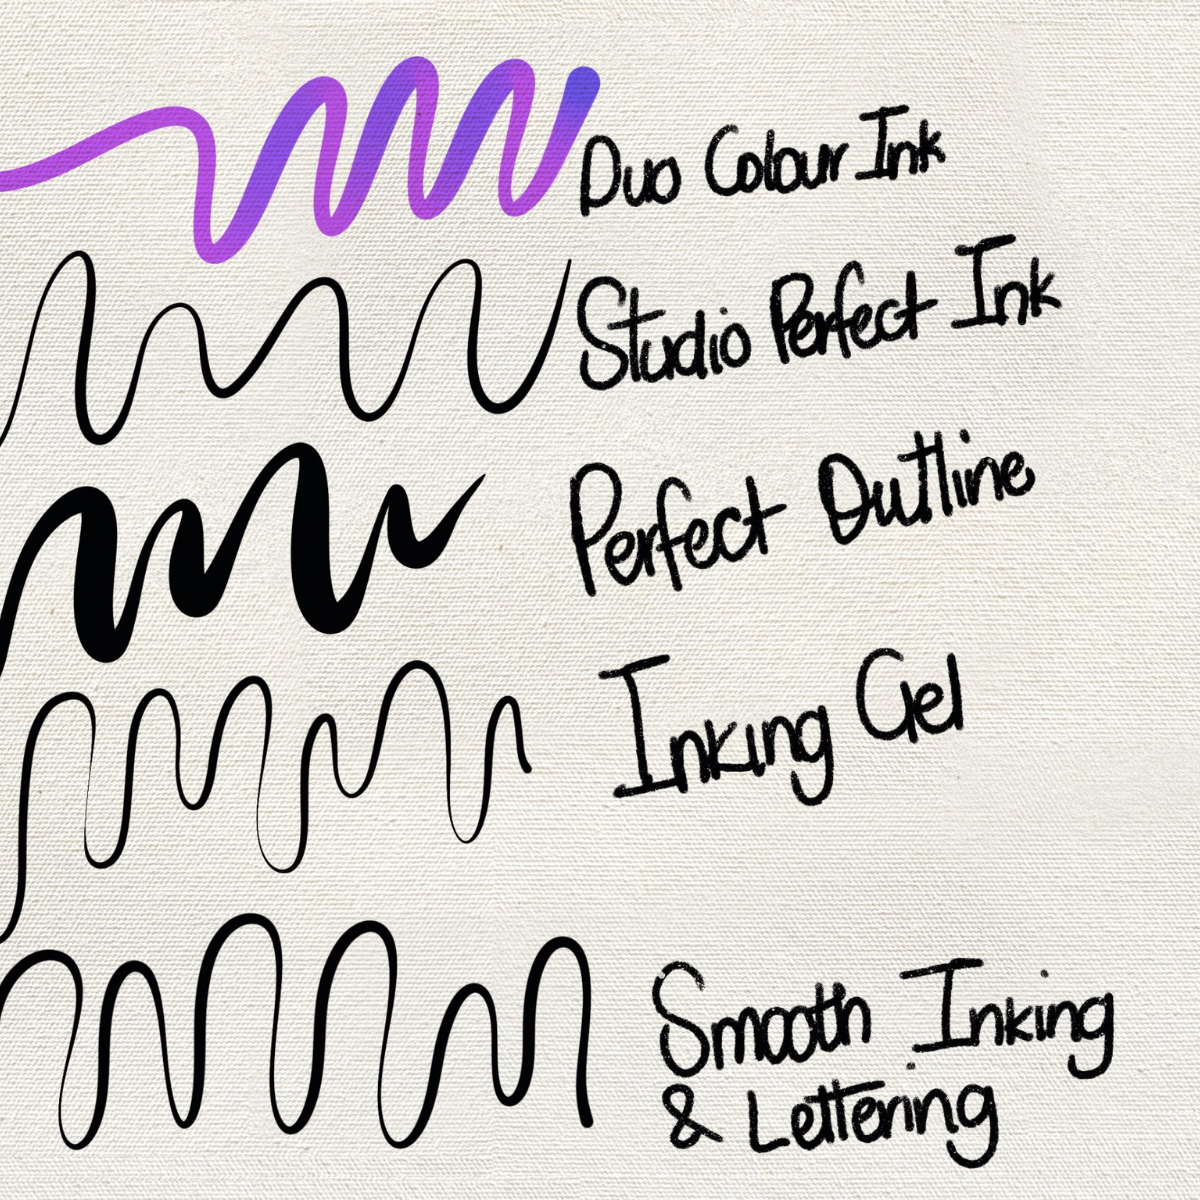 Duo Colour Ink
Studio Perfect Ink
Perfect Outline
Inking Gel
Smooth Inking
& Lettering